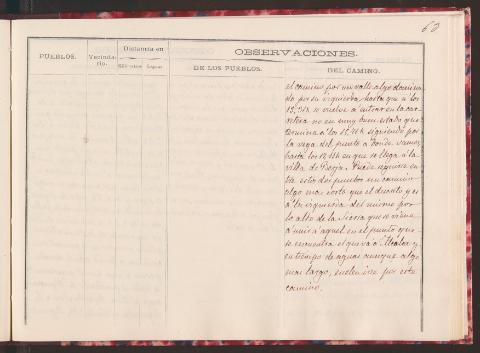 60
PUEBLOS.
Vecinda-
rio.
Distancia en
Kilómetros
Leguas
OBSERVACIONES.
DE LOS PUEBLOS.
DEL CAMINO.
el camino por un valle algo domina
do por su izquierda, hasta que a los
se vuelve a entrar en la car-
retera no en muy buen estado que
termina á los siguiendo por
la vega del punto a donde vamos
hasta los en que se llega á la
villa de Borja. Puede seguirse en
tre estos dos puntos un camino
algo mas corto que el descrito y es
a la izquierda del mismo por
lo alto de la Sierra que se viene
a unir á aquel en el punto que
se encuentra el que va a y
en tiempo de aguas aunque algo
mas largo, suelen irse por este
camino.